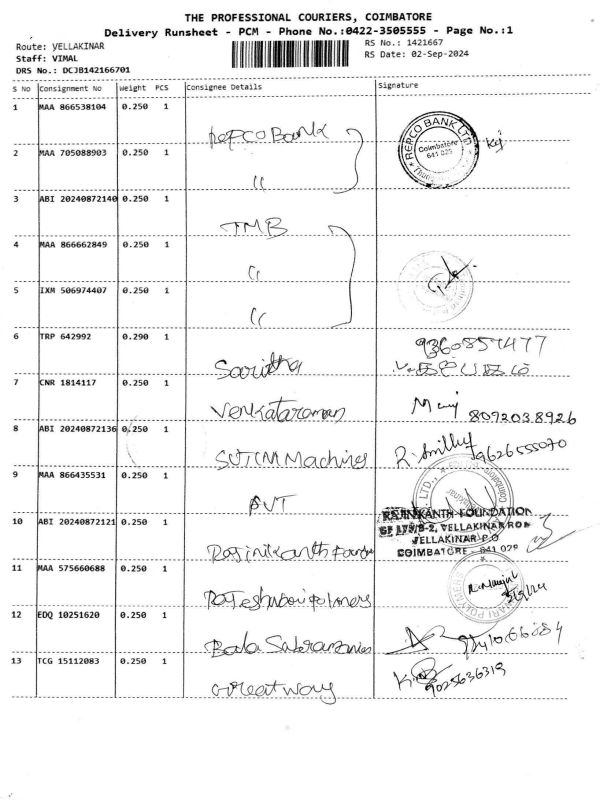 THE PROFESSIONAL COURIERS, COIMBATORE
Delivery Runsheet - PCM - Phone No.:0422-3505555 - Page No.:1
Route: VELLAKINAR
Staff: VIMAL
DRS No.: DCJB142166701
RS No.: 1421667
RS Date: 02-Sep-2024
S No Consignment No Weight PCS Consignee Details Signature
1 MAA 866538104 0.250 1 REPCO Bank
REPCO BANK LTD
Coimbatore
641 029
2 MAA 705088903 0.250 1 "
3 ABI 20240872140 0.250 1 TMB
4 MAA 866662849 0.250 1 "
5 IXM 506974407 0.250 1 "
6 TRP 642992 0.290 1 Saritha
9360857477
7 CNR 1814117 0.250 1 Venkataraman
8092038926
8 ABI 20240872136 0.250 1 SUTCM Machines
9626555070
9 MAA 866435531 0.250 1 AVT
10 ABI 20240872121 0.250 1 Rajinikanth
RAJINIKANTH FOUNDATION
VELLAKINAR ROA
VELLAKINAR P.O
COIMBATORE - 641 029
11 MAA 575660688 0.250 1 Rajeshwari polymers
12 EDQ 10251620 0.250 1 Bala
13 TCG 15112083 0.250 1 Great way
9025636319